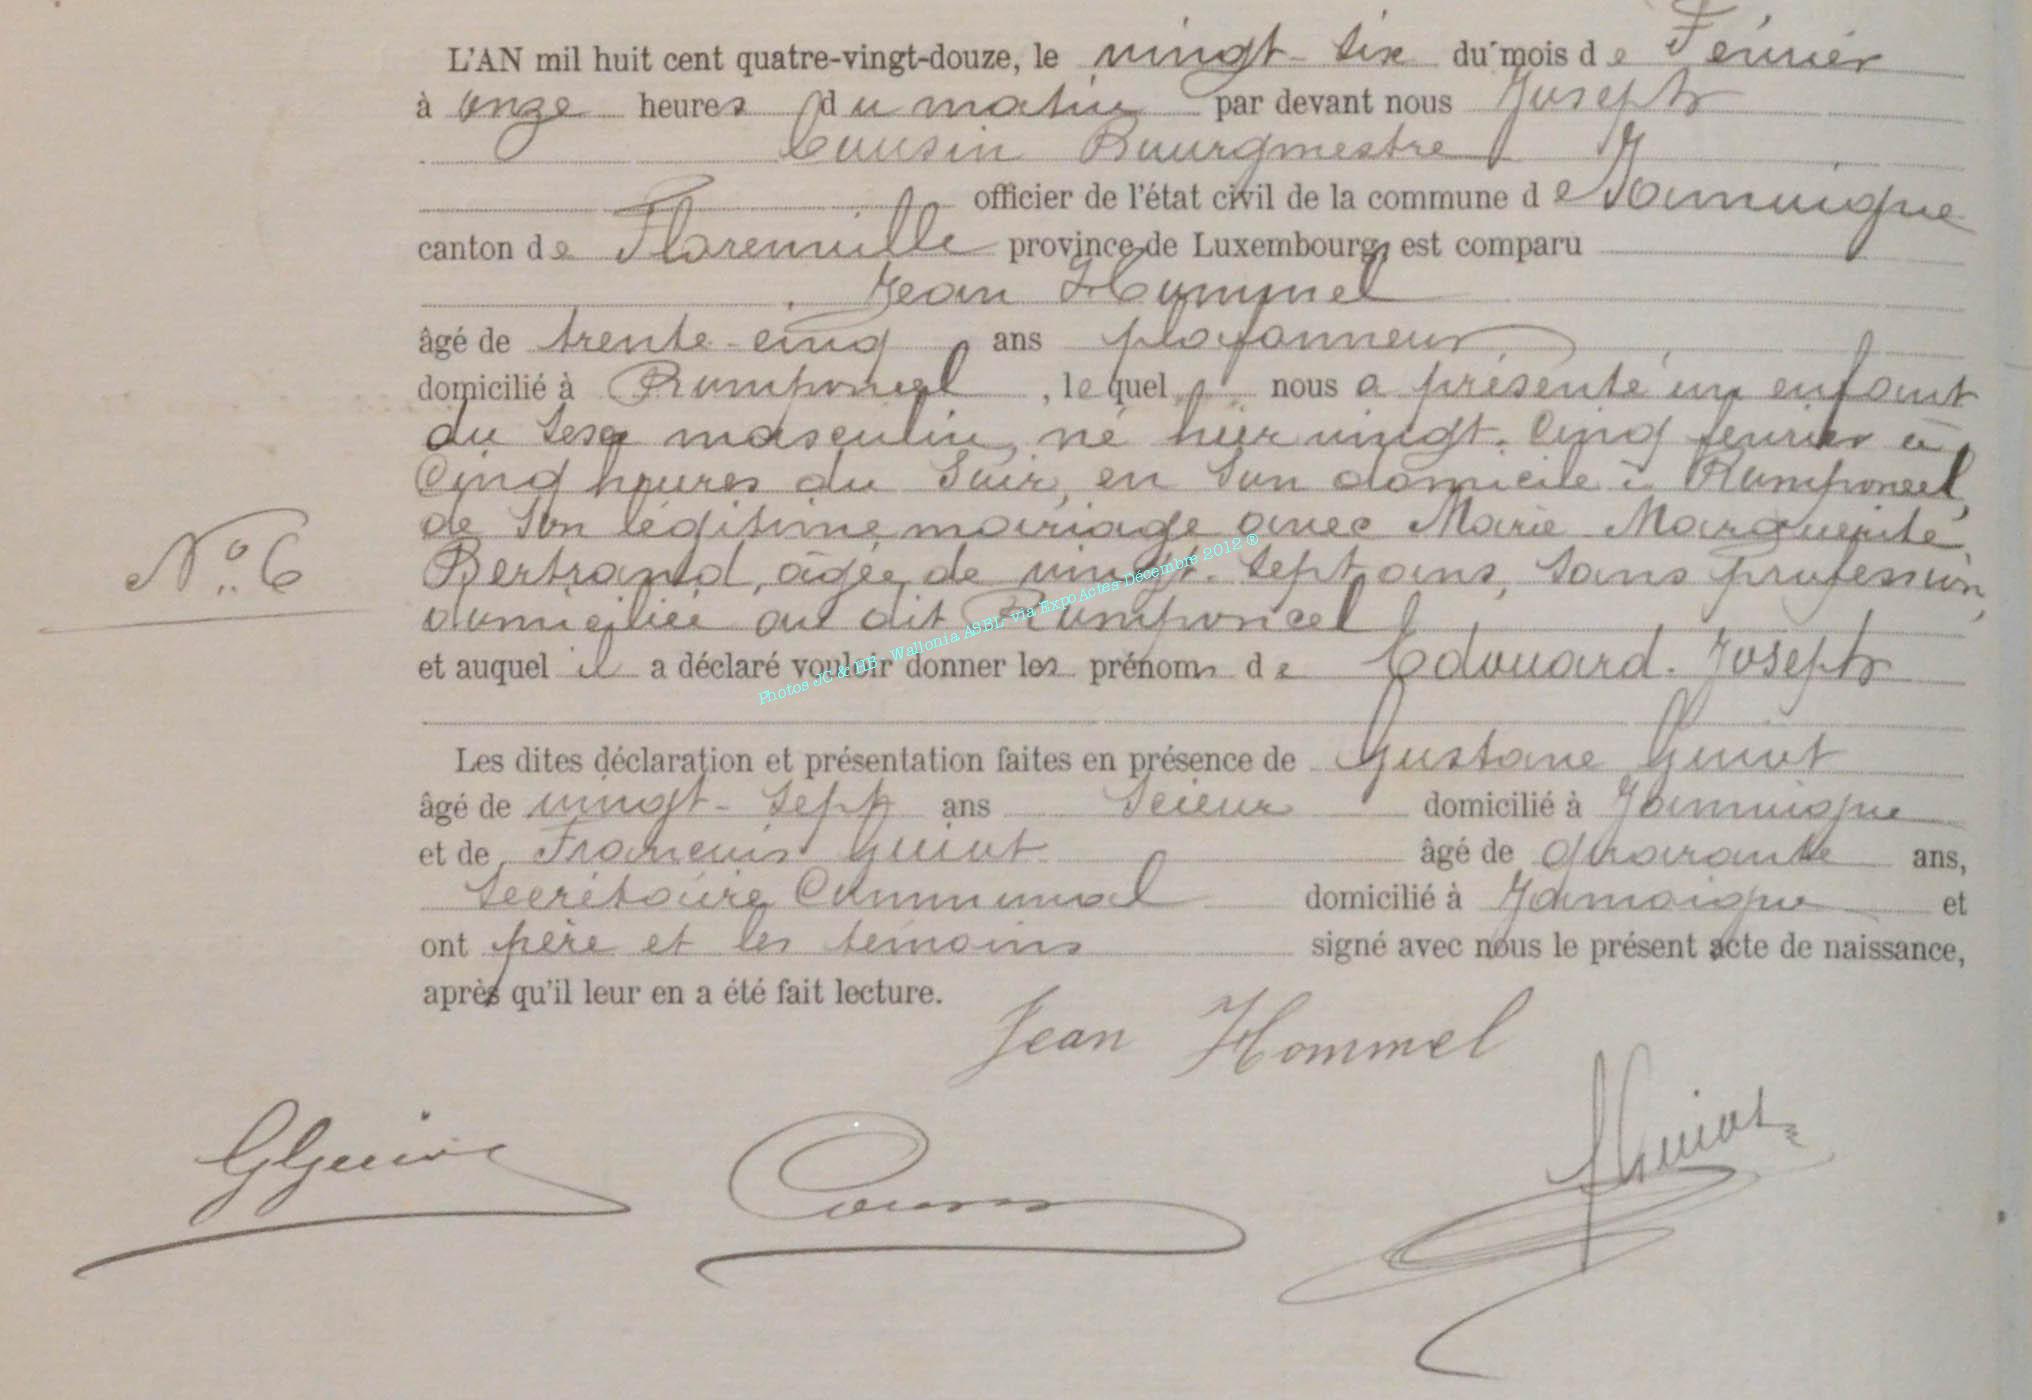 L'AN mil huit cent quatre-vingt-douze, le vingt-six du mois de Février
à onze heures du matin par devant nous Joseph
Cousin Bourgmestre
officier de l'état civil de la commune de Jamoigne
canton de Florenville province de Luxembourg, est comparu
Jean Hommel
âgé de trente-cinq ans plafonneur
domicilié à Romponcel, lequel nous a présenté un enfant
du sexe masculin, né hier vingt-cinq fevrier à
Cinq heures du soir, en son domicile à Romponcel,
de son légitime mariage avec Marie Marguerite
Bertrand, âgée de vingt-sept ans, sans profession,
domiciliée au dit Romponcel
et auquel il a déclaré vouloir donner les prénoms de Edouard-Joseph
N° 6
Les dites déclaration et présentation faites en présence de Gustave Guiot
âgé de vingt-sept ans Scieur domicilié à Jamoigne
et de François Guiot âgé de quarante ans,
Secrétaire Communal domicilié à Jamoigne et
ont père et les témoins signé avec nous le présent acte de naissance,
après qu'il leur en a été fait lecture.
Jean Hommel
GGuiot Cousin FGuiot
Photos JC & HB - Wallonia ASBL- via ExpoActes Décembre 2012 ®